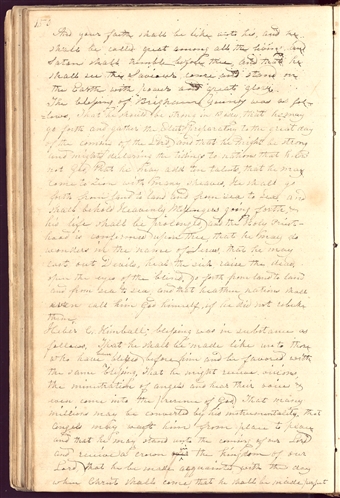 And your faith shall be like unto his, and ye
shall be called great among all the living and
Satan shall tremble before thee, and that he
shall see the Saviour come and stand on
the Earth with power and great glory.
The blessing of Brigham Young was as fol-
lows, That he should be strong in body, that he may
go forth and gather the Elect preparatory to the great day
of the coming of the Lord, and that he might be strong
and mighty declaring the tidings to nations that know
not God, that he may add ten talents, that he may
come to Zion with many sheaves, He shall go
forth from land to land and from sea to sea, and
shall behold Heavenly Messengers going forth &
his life shall be prolonged and the Holy Priest-
hood is conferred upon thee, that he may do
wonders in the name of Jesus, that he may
cast out Devils, heal the sick, raise the dead,
open the eyes of the blind, go forth from land to land
and from sea to sea, and that heathen nations shall
even call him God himself, if he did not rebuke
them.
Heber C. Kimball; blessing was in substance as
follows, That he shall be made like unto those
who have blessed before him and be favored with
the same blessing, that he might receive visions
the ministration of angels and hear their voice &
even come into the presence of God That many
millions may be converted by his instrumentality, that
angels may waft him from place to place
and that he may stand unto the coming of our Lord
and receive a crown in the kingdom of our
Lord, that he be made acquainted with the day
when Christ shall come, that he shall be made perfect